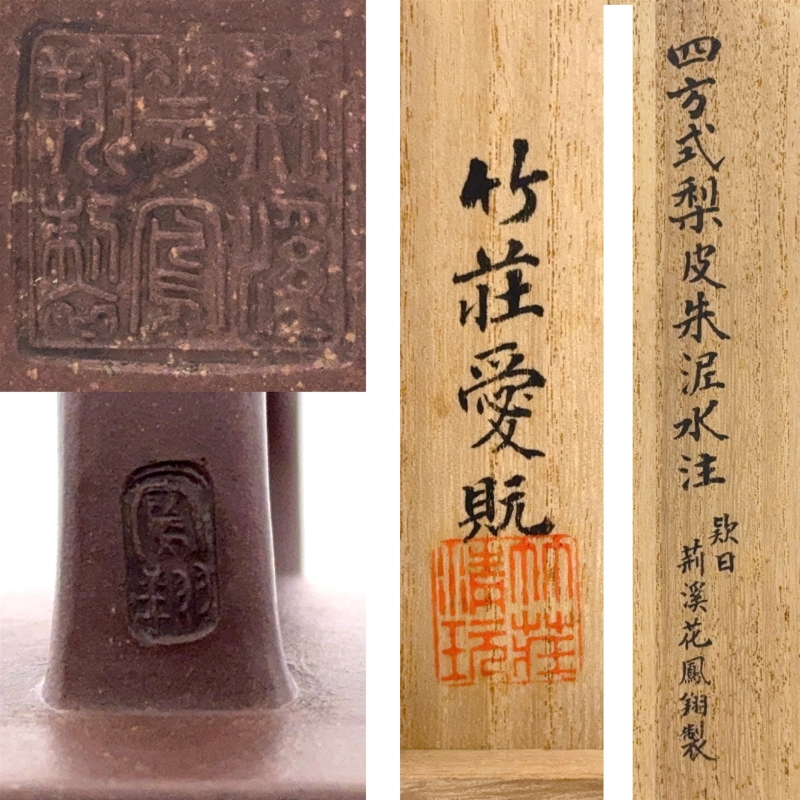 荆溪
華鳳
翔製
鳳翔
竹莊愛貦
竹莊
清玩
四方式梨皮朱泥水注
款曰
荊溪花鳳翔製